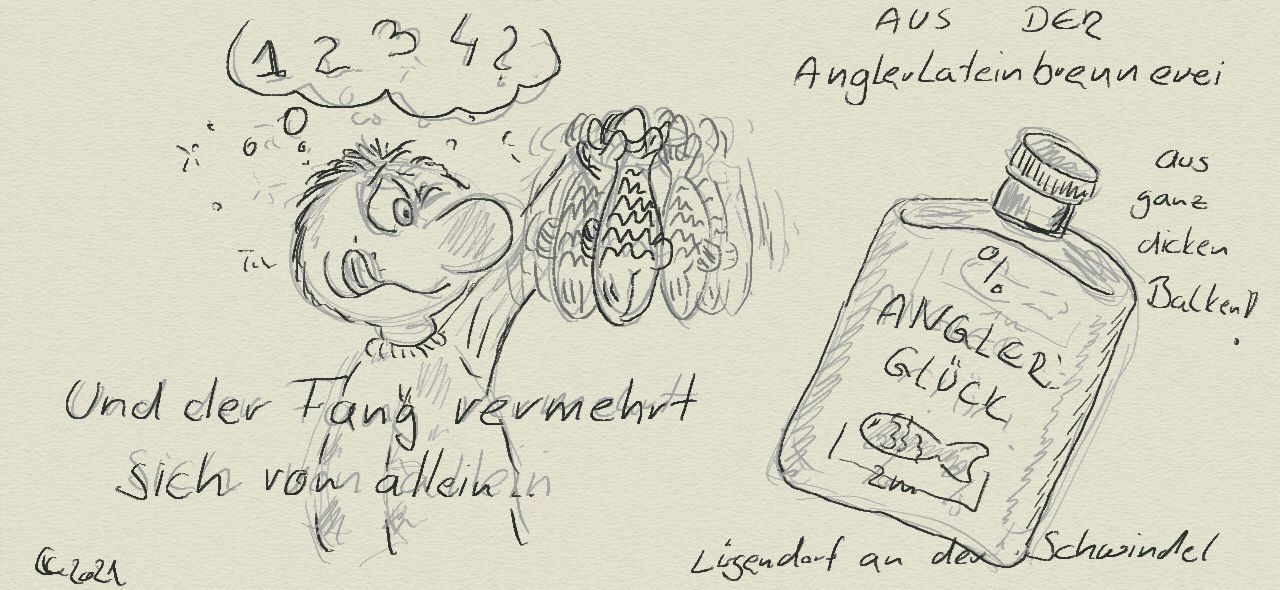 1 2 3 4 ?
AUS DER
AnglerLateinbrennerei
aus
ganz
dicken
Balken!
%
ANGLER
GLÜCK
2m
Und der Fang vermehrt
sich von allein..
Lügendorf an der Schwindel
2021